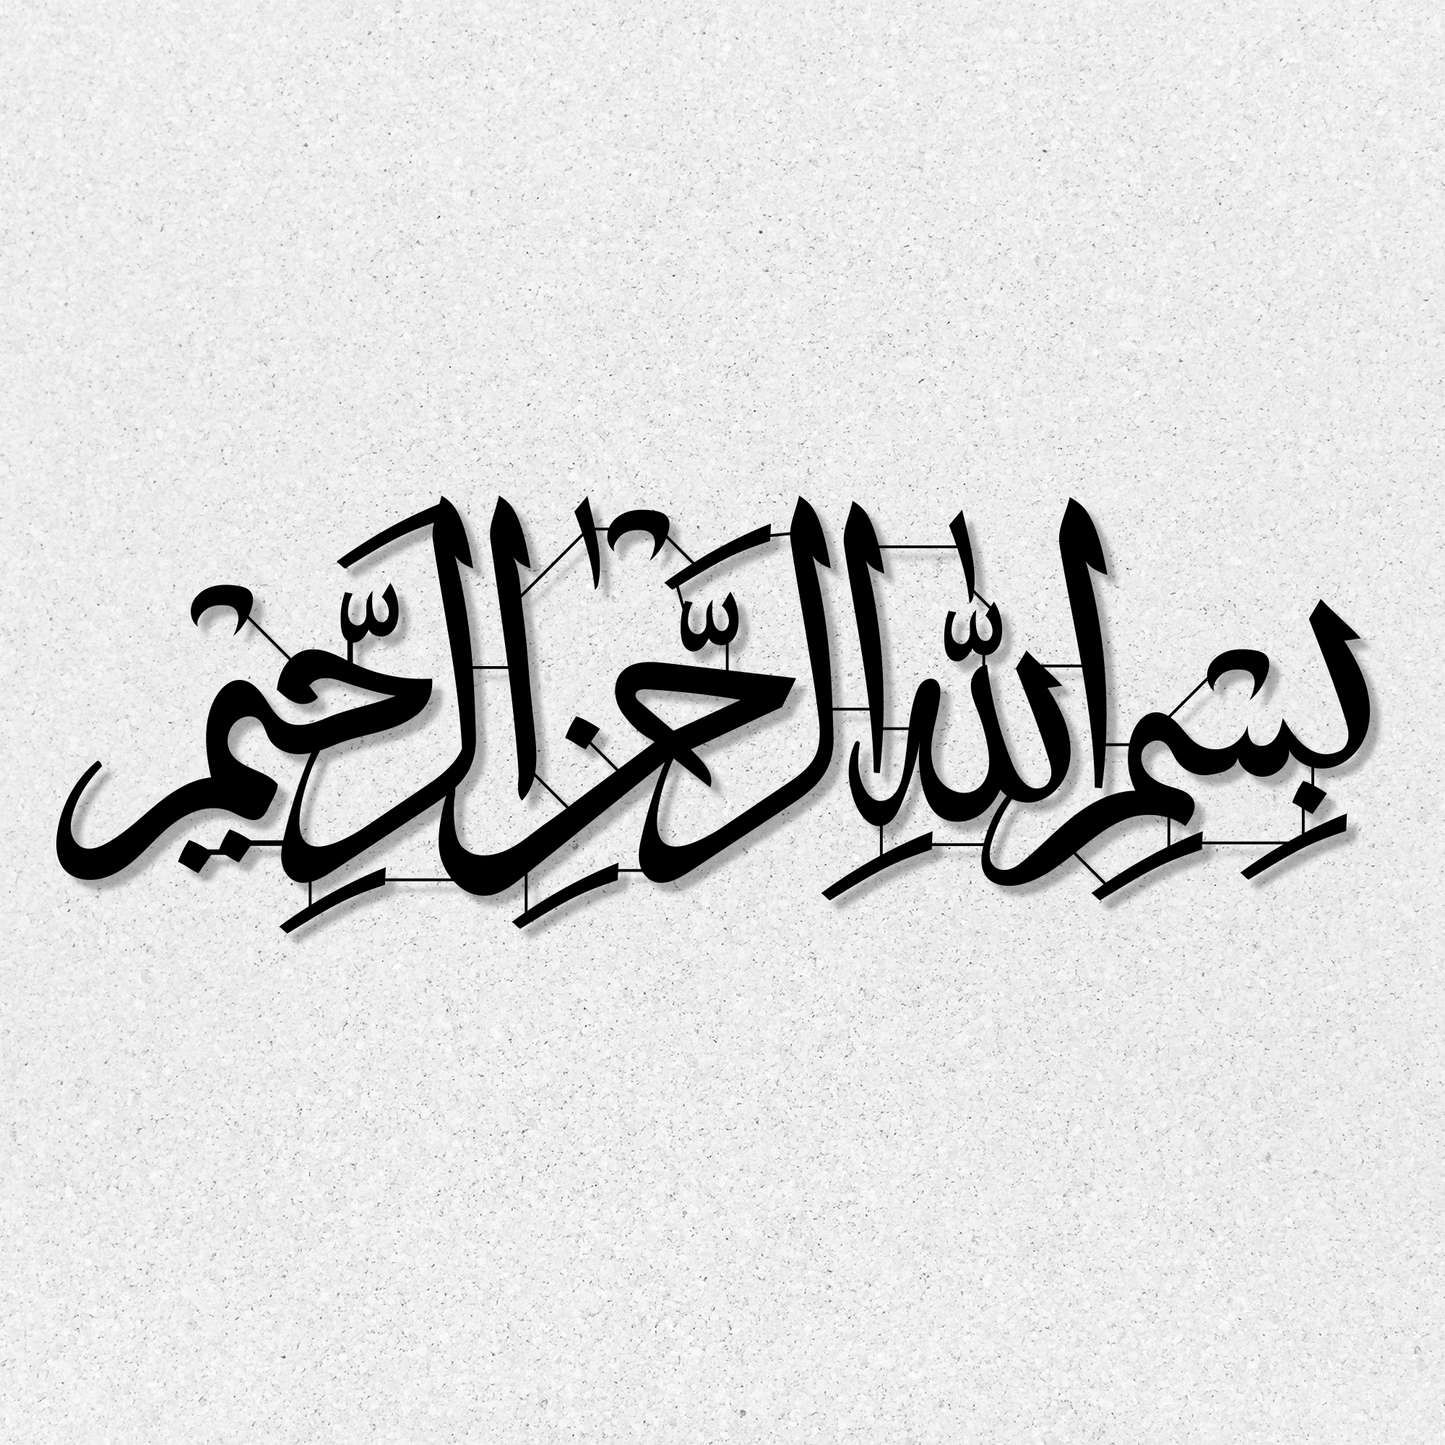 بِسْمِ اللّٰهِ الرَّحْمٰنِ الرَّحِيْم